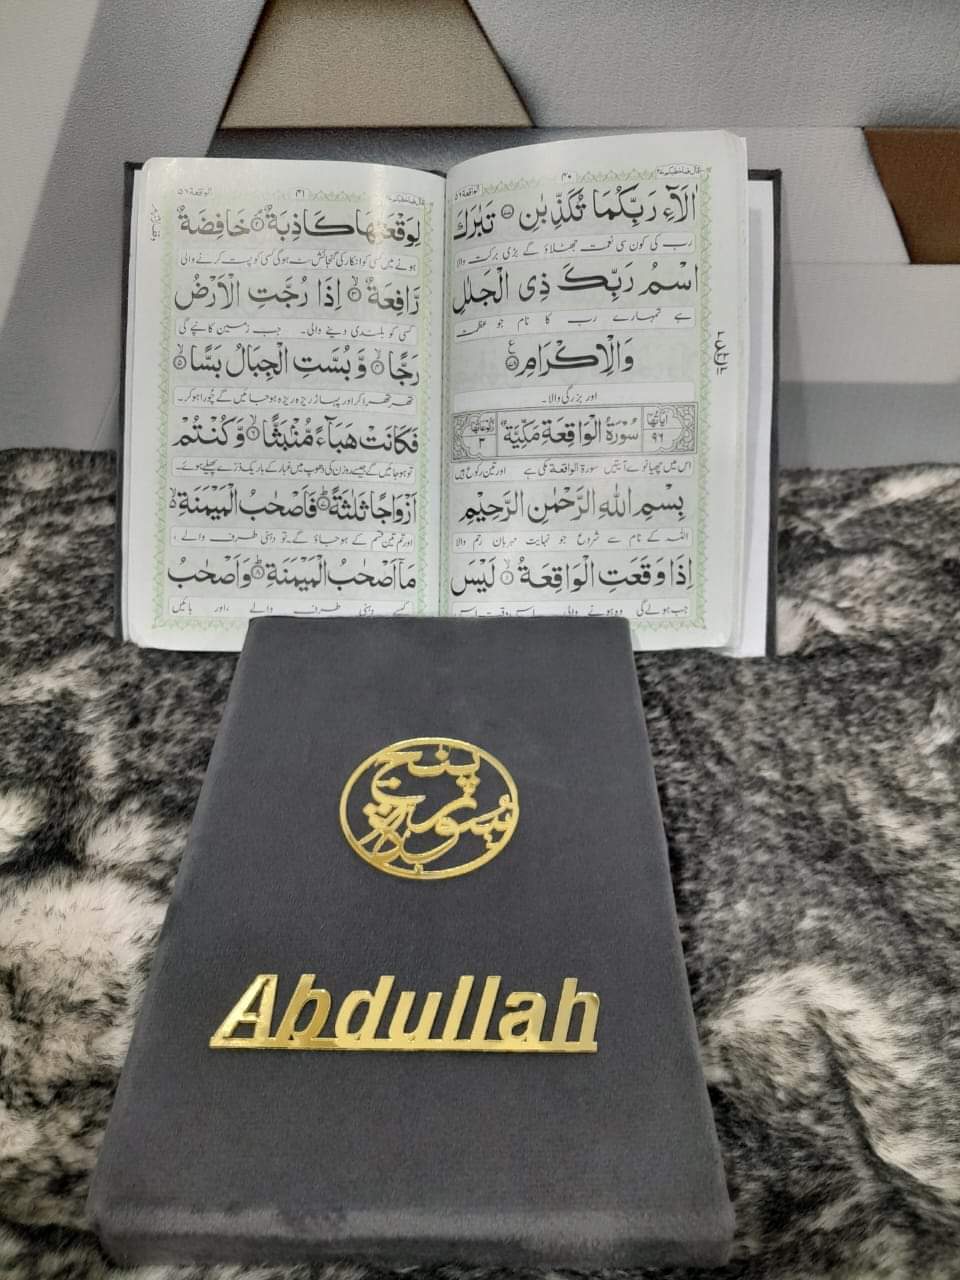 قال فما خطبکم ٢٧
٤٠
الواقعة ٥٦
اٰلَآءِ رَبِّكُمَا تُكَذِّبٰنِ تَبٰرَكَ
رب کی کون سی نعمت جھٹلاؤ گے بڑی برکت والا
اسْمُ رَبِّكَ ذِی الْجَلٰلِ
ہے تمہارے رب کا نام جو عظمت
وَالْاِكْرَامِ
اور بزرگی والا۔
اٰیاتها ٩٦ سُوْرَةُ الْوَاقِعَةِ مَكِّیَّةٌ رکوعاتها ٣
اس میں چھیانوے آیتیں سورۃ الواقعۃ مکی ہے اور تین رکوع ہیں
بِسْمِ اللّٰهِ الرَّحْمٰنِ الرَّحِیْمِ
اللہ کے نام سے شروع جو نہایت مہربان رحم والا
اِذَا وَقَعَتِ الْوَاقِعَةُ ١ لَیْسَ
جب ہولے گی وہ ہونے والی اس وقت اس
قال فما خطبکم ٢٧
٤١
الواقعة ٥٦
لِوَقْعَتِهَا كَاذِبَةٌ ٢ خَافِضَةٌ
ہونے میں کسی کو انکار کی گنجائش نہ ہوگی کسی کو پست کرنے والی
رَّافِعَةٌ ٣ اِذَا رُجَّتِ الْاَرْضُ
کسی کو بلندی دینے والی۔ جب زمین کانپے گی
رَجًّا ٤ وَّ بُسَّتِ الْجِبَالُ بَسًّا ٥
تھر تھرا کر اور پہاڑ ریزہ ریزہ ہو جائیں گے چورا ہو کر۔
فَكَانَتْ هَبَآءً مُّنْۢبَثًّا ٦ وَّ كُنْتُمْ
تو ہو جائیں گے جیسے روزن کی دھوپ میں غبار کے باریک ذرے پھیلے ہوئے
اَزْوَاجًا ثَلٰثَةً ٧ فَاَصْحٰبُ الْمَیْمَنَةِ
اور تم تین قسم کے ہو جاؤ گے۔ تو دہنی طرف والے،
مَاۤ اَصْحٰبُ الْمَیْمَنَةِ ٨ وَاَصْحٰبُ
کیسے دہنی طرف والے، اور بائیں
پنج سورہ
Abdullah